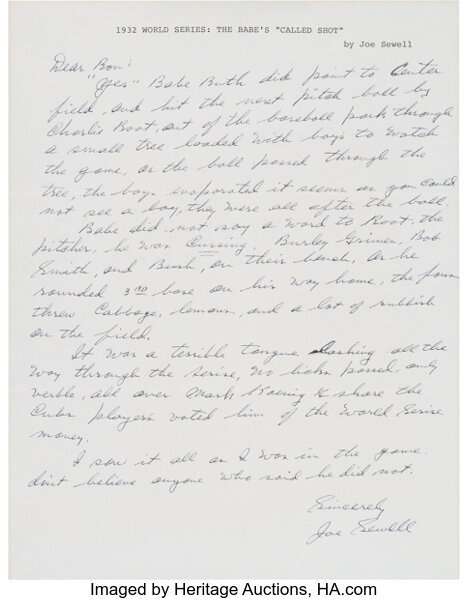 1932 WORLD SERIES: THE BABE'S "CALLED SHOT"
by Joe Sewell
Dear Ron:
"Yes" Babe Ruth did point to Center
field, and hit the next pitch ball by
Charlie Root, out of the baseball park through
a small tree loaded with boys to watch
the game, as the ball passed through the
tree, the boys evaporated it seems as you could
not see a boy, they were all after the ball.
Babe did not say a word to Root, the
pitcher, he was Cursing, Burley Grimes, Bob
Smith, and Bush, on their bench, as he
rounded 3rd base on his way home, the fans
threw Cabbage, lemons, and a lot of rubbish
on the field.
It was a terrible tongue lashing all the
way through the serise, no licks passed, only
verble, all over Mark Koenig ½ share the
Cubs players voted him of the World Serise
money.
I saw it all as I was in the game.
don't believe anyone who said he did not.
Sincerely
Joe Sewell
Imaged by Heritage Auctions, HA.com